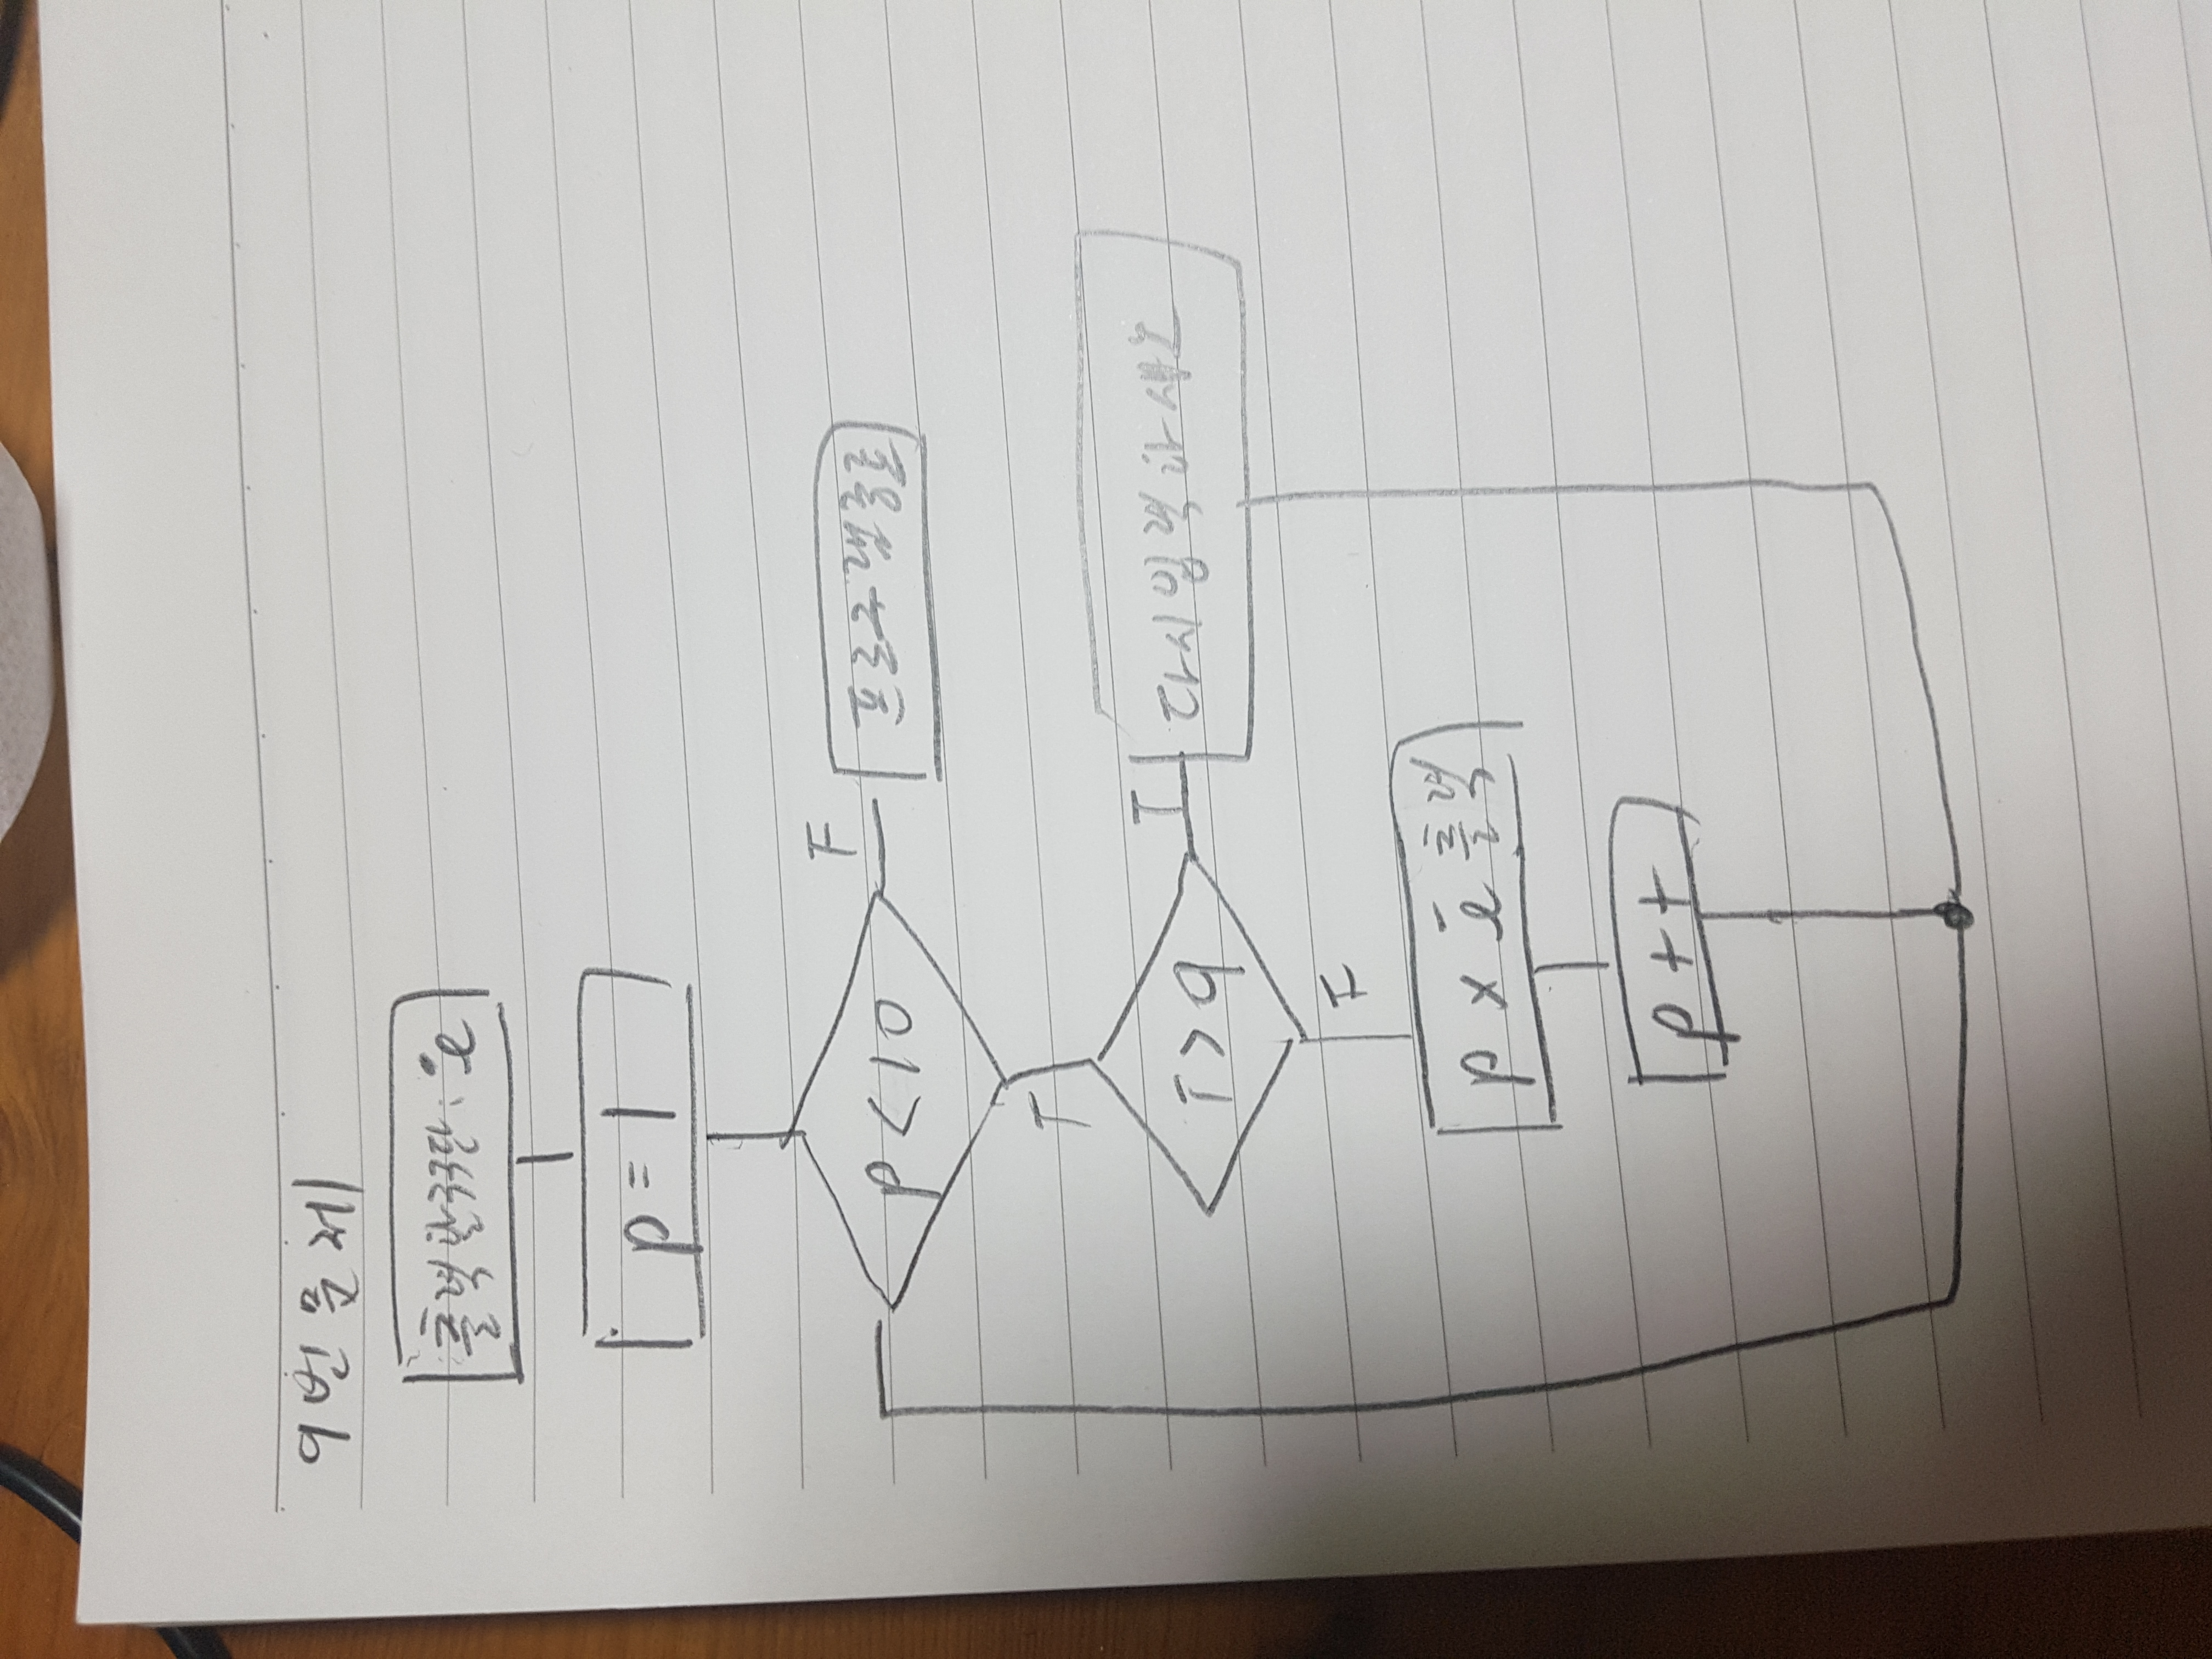 9번 문제
출력할 구구단 : i
p = 1
p < 10
F
프로그램종료
T
i > 9
T
다시입력하세요
F
p x i 출력
p + +